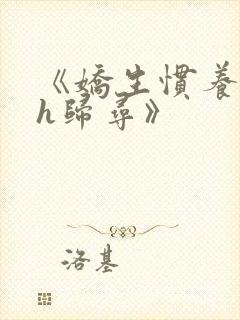 《嬌生慣養
h歸尋》
洛基